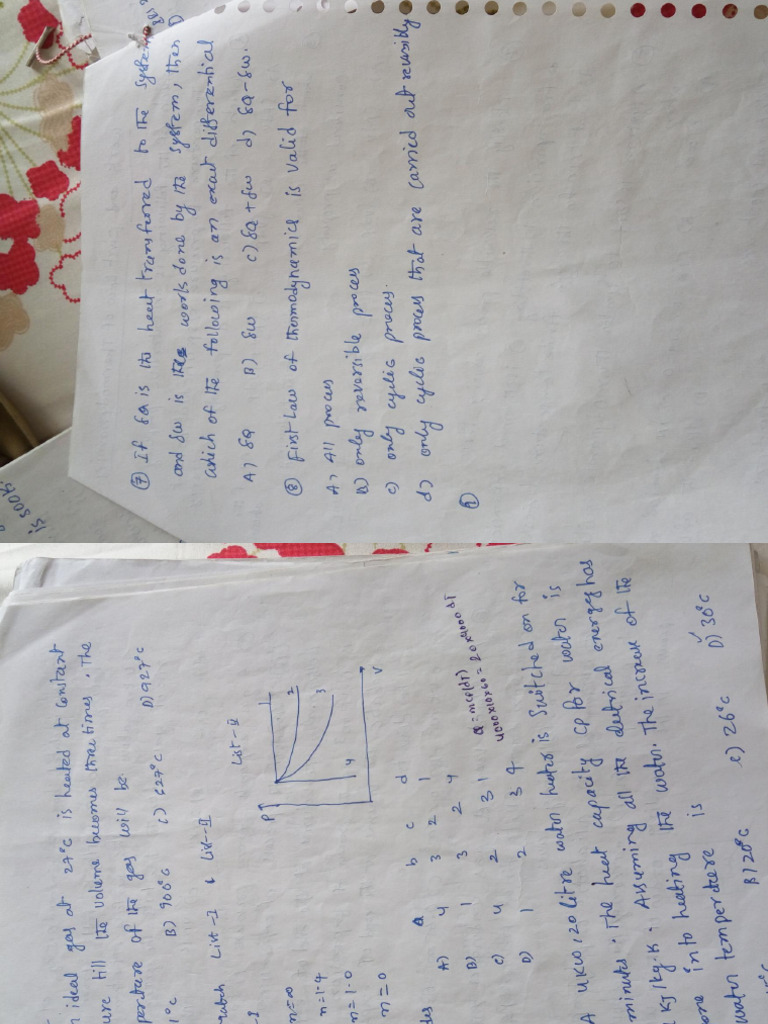 ⑦ If δQ is the heat transferred to the system
and δw is the work done by the system, then
which of the following is an exact differential
A) δQ B) δw c) δQ + δw d) δQ - δw.
⑧ First Law of thermodynamics is valid for
A) All process
B) only reversible process
c) only cyclic process.
d) only cyclic process that are carried out reversibly
is 500k
ideal gas at 27°C is heated at constant
ure till the volume becomes three times. The
perature of the gas will be
1°C B) 900°C c) 627°C D) 927°C
match List-I & List-II
List-II
n=∞
n=1.4
n=1.0
n=0
P
2
3
4
V
a b c d
A) 4 3 2 1
B) 1 3 2 4
c) 4 2 3 1
D) 1 2 3 4
Q = mcp(dT)
4000×10×60 = 20×4000 dT
A 4kw, 20 litre water heater is switched on for
minutes. The heat capacity Cp for water is
kJ/kg.K. Assuming all the electrical energy has
one into heating the water. The increase of the
water temperature is
B) 20°C c) 26°C D) 30°C